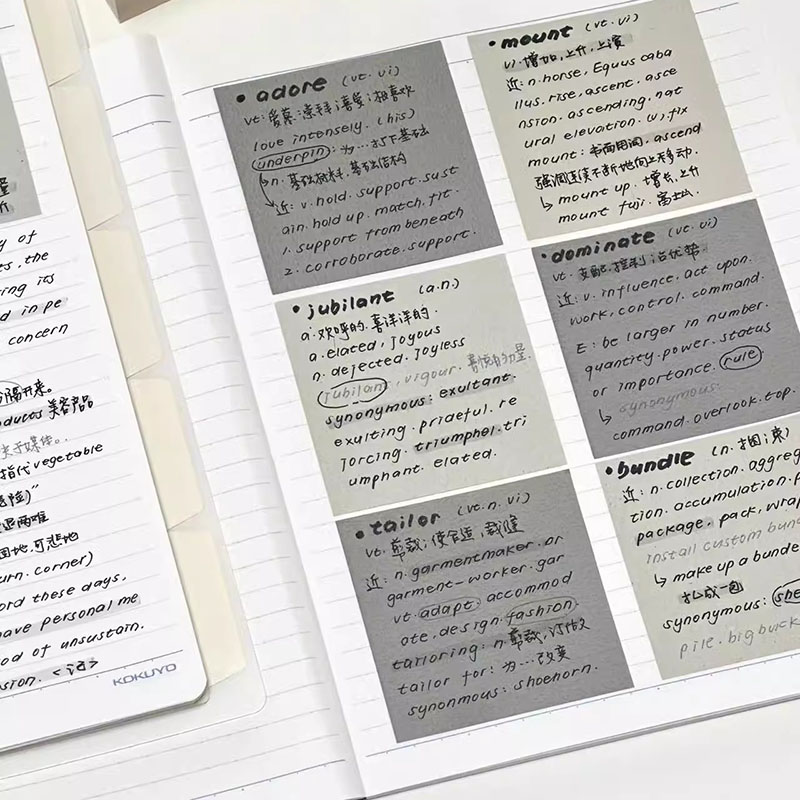 y of
es, the
ring its
d in pe
concern
分隔开来。
oducts 美容产品
关于媒体。
指代 vegetable
urn. corner)
ord these days,
ave personal me
od of unsustain.
sion.
KOKUYO
• adore (vt. vi)
vt: 爱慕; 崇拜; 喜爱; 极喜欢
love intensely. (his)
underpin: 为…打下基础
n. 基础材料. 基础结构
近: v. hold. support. sust
ain. hold up. match. fit.
1. support from beneath
2. corroborate. support.
• jubilant (a.n.)
a: 欢呼的. 喜洋洋的.
a. elated, joyous
n. dejected. joyless
jubilant, vigour.
synonymous: exultant.
exulting. prideful. re
joicing. triumphal. tri
umphant. elated.
• tailor (vt. n. vi)
vt. 剪裁; 使合适; 裁缝
近: n. garmentmaker. or
garment-worker. gar
vt. adapt. accommod
ate. design. fashion.
tailoring: n. 剪裁, 订做
tailor for: 为…改变
synonmous: shoehorn.
• mount (vt. vi)
vi. 增加, 上升, 上演
近: n. horse, Equus caba
llus. rise, ascent, asce
nsion. ascending. nat
ural elevation. (v). fix
mount: 书面用词, ascend
强调连续不断地向上移动.
mount up. 增长, 上升
mount fuji. 富士山.
• dominate (vt. vi)
vt. 支配, 控制; 占优势.
近: v. influence, act upon.
work, control. command.
E: be larger in number.
quantity. power. status
or importance. rule
synonymous:
command. overlook. top.
• bundle (n. 捆; 束)
近: n. collection. aggreg
tion. accumulation. p
package. pack, wrap
install custom bun
make up a bunde
扎成一包
synonymous: shea
pile. big buck